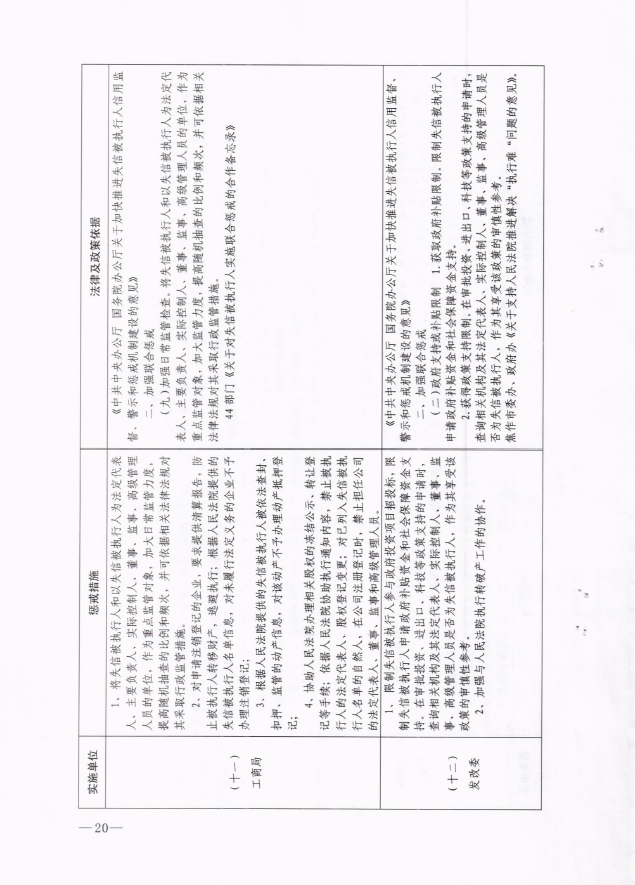 实施单位
惩戒措施
法律及政策依据
（十一）
工商局
1、将失信被执行人和以失信被执行人为法定代表
人、主要负责人、实际控制人、董事、监事、高级管理
人员的单位，作为重点监管对象，加大日常监管力度，
提高随机抽查的比例和频次，并可依据相关法律法规对
其采取行政监管措施。
2、对申请注销登记的企业，要求提供清算报告，防
止被执行人转移财产，逃避执行；根据人民法院提供的
失信被执行人名单信息，对未履行法定义务的企业不予
办理注销登记；
3、根据人民法院提供的失信被执行人被依法查封、
扣押、监管的动产信息，对该动产不予办理动产抵押登
记；
4、协助人民法院办理相关股权的冻结公示、转让登
记等手续；依据人民法院协助执行通知内容，禁止被执
行人的法定代表人、股权登记变更；对已列入失信被执
行人名单的自然人，在公司注册登记时，禁止担任公司
的法定代表人、董事、监事和高级管理人员。
《中共中央办公厅 国务院办公厅关于加快推进失信被执行人信用监
督、警示和惩戒机制建设的意见》
二、加强联合惩戒
（九）加强日常监管检查。将失信被执行人和以失信被执行人为法定代
表人、主要负责人、实际控制人、董事、监事、高级管理人员的单位，作为
重点监管对象，加大监管力度，提高随机抽查的比例和频次，并可依据相关
法律法规对其采取行政监管措施。
44部门《关于对失信被执行人实施联合惩戒的合作备忘录》
（十二）
发改委
1、限制失信被执行人参与政府投资项目招投标，限
制失信被执行人申请政府补贴资金和社会保障资金支
持。在审批投资、进出口、科技等政策支持的申请时，
查询相关机构及其法定代表人、实际控制人、董事、监
事、高级管理人员是否为失信被执行人，作为其享受该
政策的审慎性参考。
2、加强与人民法院执行转破产工作的协作。
《中共中央办公厅 国务院办公厅关于加快推进失信被执行人信用监督、
警示和惩戒机制建设的意见》
二、加强联合惩戒
（二）政府支持或补贴限制 1.获取政府补贴限制。限制失信被执行人
申请政府补贴资金和社会保障资金支持。
2.获得政策支持限制。在审批投资、进出口、科技等政策支持的申请时，
查询相关机构及其法定代表人、实际控制人、董事、监事、高级管理人员是
否为失信被执行人，作为其享受该政策的审慎性参考。
焦作市委办、政府办《关于支持人民法院推进解决“执行难”问题的意见》。
—20—